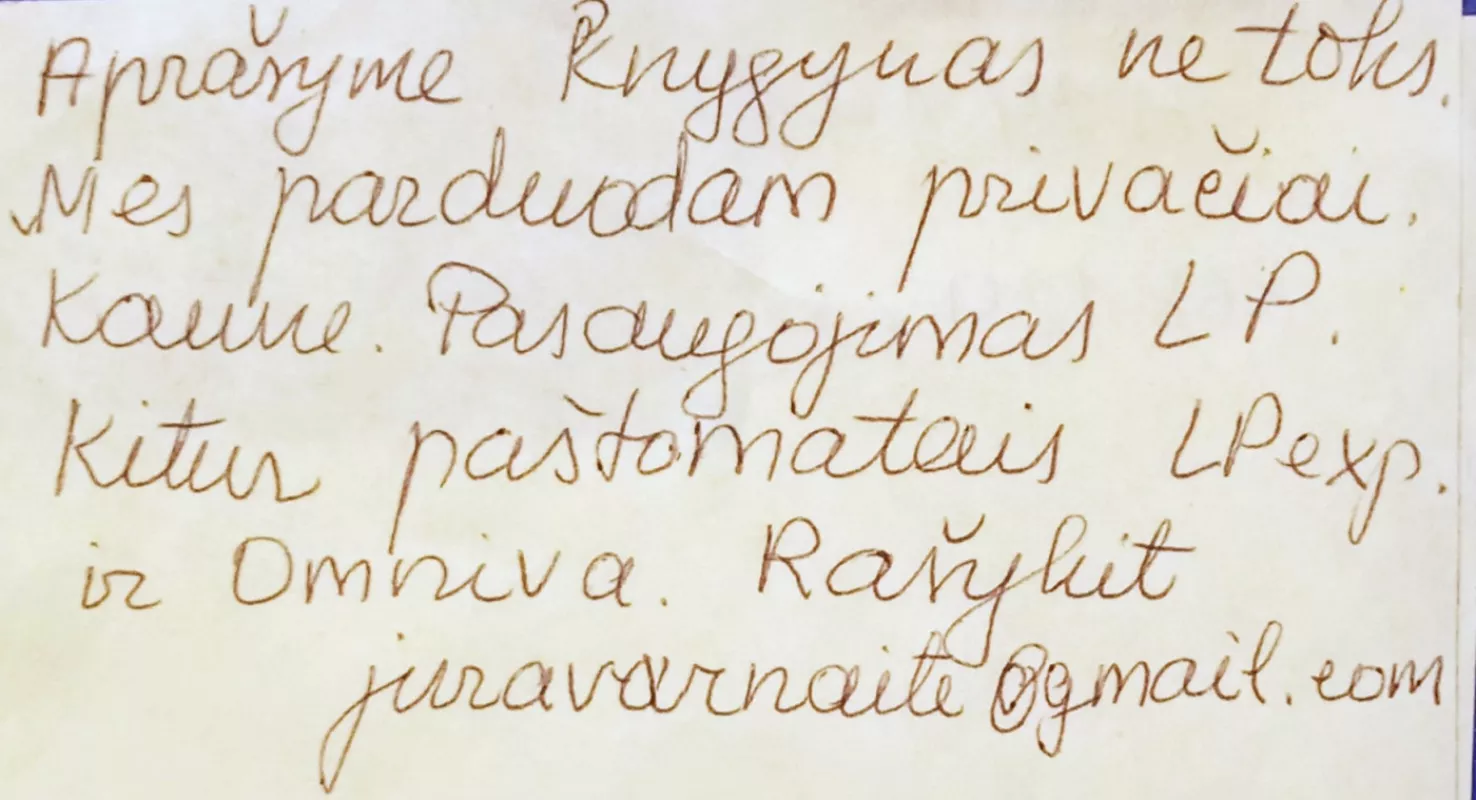 Aprašyme Knygynas ne toks.
Mes parduodam privačiai.
Kaune. Pasaugojimas LP.
Kitur paštomatais LPexp.
ir Omniva. Rašykit
juravarnaite@gmail.com